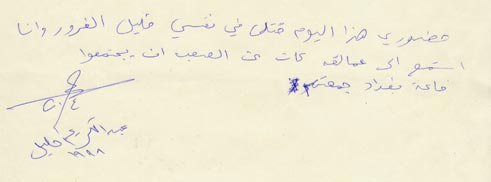 حضوري هذا اليوم قتل في نفسي قليل الغرور وانا
استمع الى عمالقه كانت من الصعب ان يجتمعوا
قاعة بغداد جمعتهم
عبد الكريم خليل
١٩٩٨